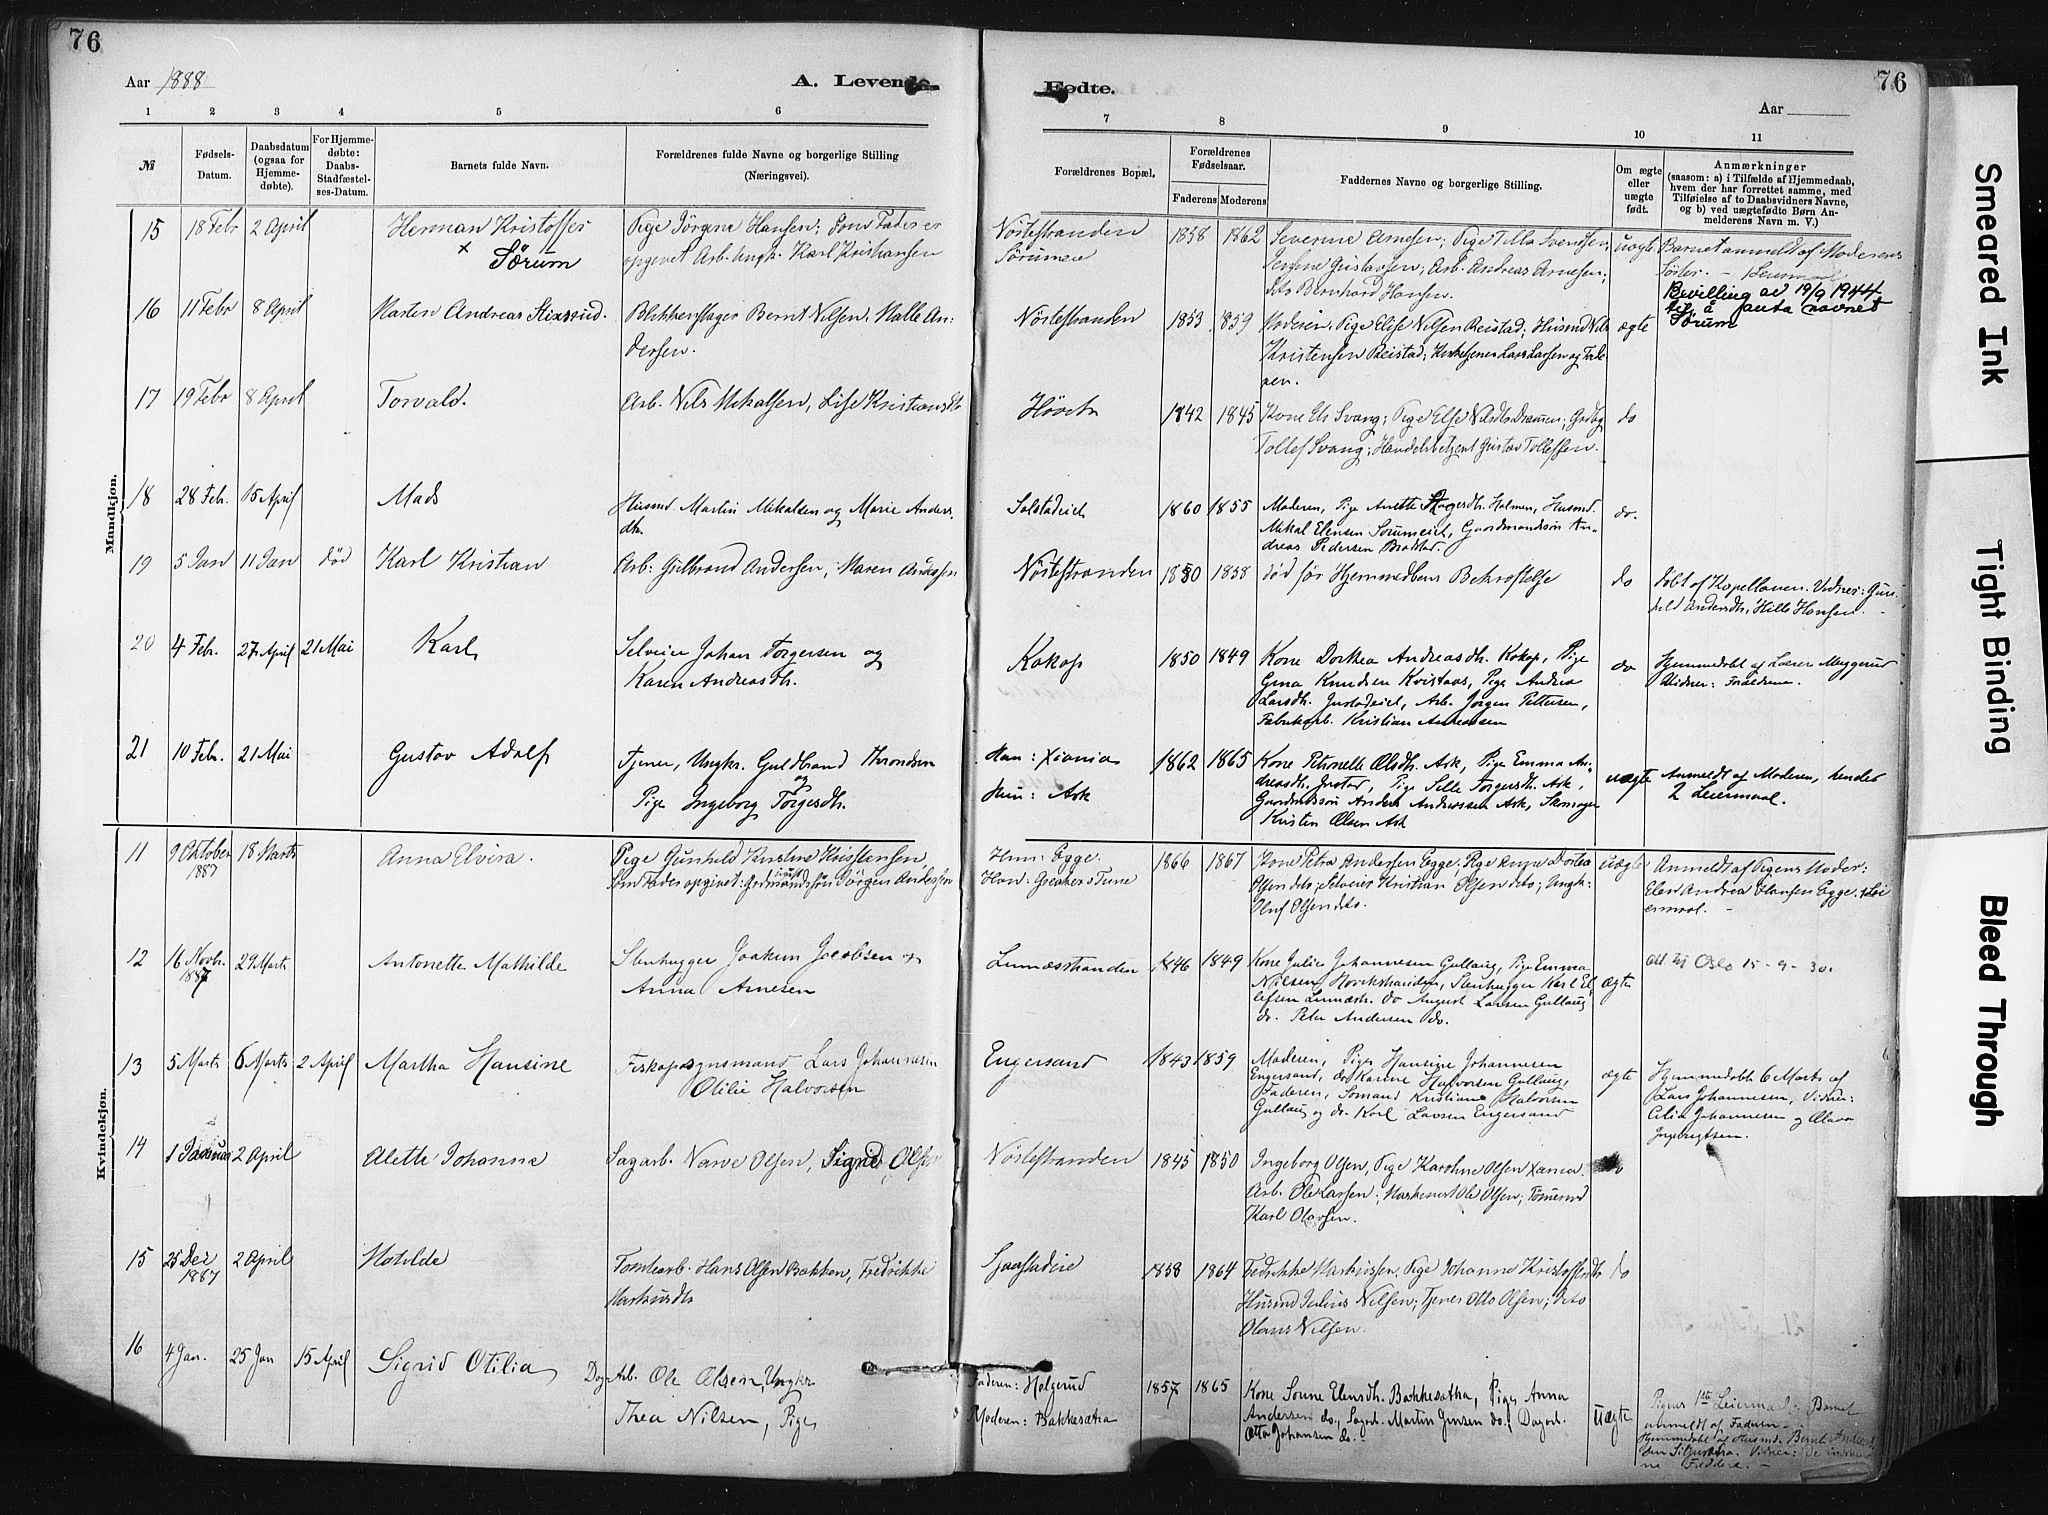 76
76
Aar 1888
A. Levende
Fødte.
Aar
1 2 3 4 5 6 7 8 9 10 11
№
Fødsels-
Datum.
Daabsdatum
(ogsaa for
Hjemme-
døbte).
For Hjemme-
døbte:
Daabs-
Stadfæstel-
ses-Datum.
Barnets fulde Navn.
Forældrenes fulde Navne og borgerlige Stilling
(Næringsvei).
Forældrenes Bopæl.
Forældrenes
Fødselsaar.
Faderens
Moderens
Faddernes Navne og borgerlige Stilling.
Om ægte
eller
uægte
født.
Anmærkninger
(saasom: a) i Tilfælde af Hjemmedaab,
hvem der har forrettet samme, med
Tilføielse af to Daabsvidners Navne,
og b) ved uægtefødte Børn An-
melderens Navn m. V.)
Mandkjøn.
15 18 Febr 2 April
Herman Kristoffer
x Sørum
Pige Jørgene Hansen; Som Fader er
opgivet Arb. Ungk. Karl Kristiansen
Nøstestranden
Sørumeie
1858 1862
Severine Arnesen; Pige Tilla Svendsen;
Gustavsen; Arb. Andreas Arnesen;
dito Bernhard Hansen.
uægte
Barnet anmeldt af Moderens
Søster. - Leiermaal
Bevilling av 19/9 1944
til å anta navnet
Sørum
16 11 Febr 8 April
Marten Andreas
Blikkenslager Bernt Nilsen, Malle An-
dersen.
Nøstestranden
1853 1859
Moderen, Pige Elise Nilsen Reistad; Husmd Nils
Kristensen Reistad; Kirketjener Lars Larsen og Fade-
ren.
ægte
17 19 Febr 8 April
Torvald.
Arb. Nils Mikalsen, Lise Kristiansdtr
1842 1845
Kone Svang; Pige Else
Tollef Svang; Handelsbetjent Gustav Tollefsen.
do
18 28 Feb. 15 April
Mads
Husmd. Martin Mikalsen og Marie Anders-
dtr.
Solstadeiet
1860 1855
Moderen, Pige Anette Holmen, Husmd.
Mikal Elensen Sørumeiet, Gaardmandssøn An-
dreas Pedersen
do.
19 5 Jan 11 Jan død
Karl Kristian
Arb: Gulbrand Andersen, Maren Andersen
Nøstestranden
1850 1858
død før Hjemmedbens Bekræftelse
do
døbt af Kapellanen. Vidner: Gun-
hild Andersdtr, Hilla Hansen.
20 4 Feb. 27 April 21 Mai
Karl
Selveier Johan Torgersen og
Karen Andreasdtr.
Kokop
1850 1849
Kone Dorthea Andreasdtr. Kokop, Pige
Gina Knudsen Kvistaas, Pige Andrea
Larsdtr. Justadeiet, Arb. Jørgen Pettersen,
Fabrikarb. Kristian Andreassen
do
Hjemmedøbt af Lærer Myggerud
Vidner: Forældrene.
21 10 Feb. 21 Mai
Gustav Adolf
Tjener, Ungkr. Guldbrand Throndsen
og
Pige Ingeborg Torgersdtr.
Han: Xiania
Hun: Ask
1862 1865
Kone Petronelle Olsdtr. Ask, Pige Emma An-
dreasdtr. Justad, Pige Selle Torgersdtr. Ask,
Gaardmdssøn Anders Andreassen Ask, Skomager
Kristen Olsen Ask
uægte
Anmeldt af Moderen, hendes
2 Leiermaal.
Kvindekjøn.
11 9 Oktober 18 Marts
1887
Anna Elvira.
Pige Gunhild Kristine Kristensen
Som Fader opgivet: Grdmandssøn Jørgen Andersen
Hun: Egge.
Han: Greaker i Tune
1866 1867
Kone Petra Andersen Egge; Pige Anne Dortea
Olsen dito; Selveier Kristian Olsen dito; Ungk.
Oluf Olsen dito.
uægte
Anmeldt af Pigens Moder:
Elen Andrea Hansen Egge. 1 Lei
ermaal.
12 16 Novb. 29 Marts
1887
Antonette Mathilde
Stenhugger Joakim Jacobsen og
Anna Arnesen
Linnæsstranden
1846 1849
Kone Julie Johannesen Gullaug, Pige Emma
Nilsen, Stenhugger Karl El-
lefsen Linnæstr. do August Larsen Gullaug
do. Peter Andersen do.
ægte
Oslo 15-9-30.
13 5 Marts 6 Marts 2 April
Martha Hansine
Fiskeopsynsmand Lars Johannesen
Otilie Halvorsen
Engersand
1843 1859
Moderen, Pige Hansine Johannesen
Engersand, do Karine Halvorsen Gullaug,
Faderen, Sømand Kristian Halvorsen
Gullaug og do. Karl Larsen Engersand
ægte
Hjemmedøbt 6 Marts af
Lars Johannesen, Vidner:
Johannesen og Olava
Ingebrigtsen.
14 1 Januar 2 April
Alette Johanne
Sagarb. Narve Olsen, Sigrid Olsen
Nøstestranden
1845 1850
Ingeborg Olsen, Pige Karoline Olsen Xania
Arb. Ole Larsen; Ole Olsen; Tømmermd
Karl Olavsen.
do
15 25 Dec 2 April
1887
Matilde
Tomtearb. Hans Olsen Bakken, Fredrikke
Markusdtr
Sjaastadeie
1858 1864
Fredrikke Markussen, Pige Johanne Kristoffersdtr
Husmd Julius Nilsen; Tjener Otto Olsen; dito
Olaus Nilsen.
do
16 4 Jan. 25 Jan 15 April
Sigrid Otilia
Dag Arb. Ole Olsen, Ungkr
Thea Nilsen, Pige
Faderen: Holgerud
Moderen: Bakkesætra
1857 1865
Kone Elensdtr. Bakkesætra, Pige Anna
Andersen do, Sagarb. Martin Jensen do, Dagarb.
Otto Johansen do.-
Uægte
Pigens 1ste Leiermaal. Barnet
anmeldt af Faderen -
Hjemmedøbt af Husmd. Bernt
Vidner: De
Faddere. -
Smeared Ink
Tight Binding
Bleed Through